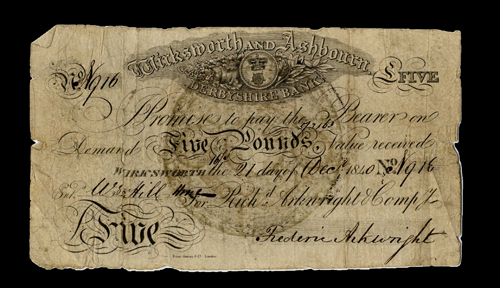 Wirksworth AND Ashbourn
DERBYSHIRE BANK
No 1916 £ FIVE
I Promise to pay the Bearer on
Demand Five Pounds, Value received
WIRKSWORTH the 21 day of Decr. 1840 No 1916
Ent. Wm Hill For Richd. Arkwright & Compy.
Five Frederic Arkwright